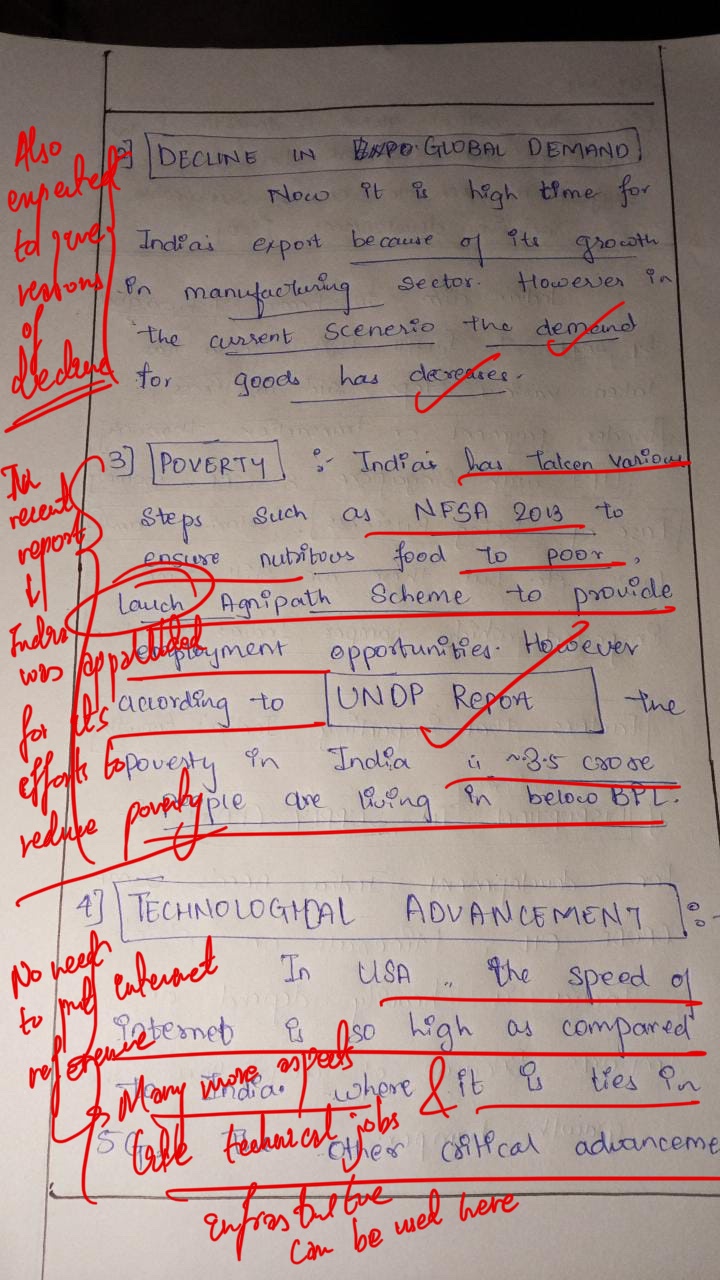 Also
expected
to give
reasons
of
decline
2] DECLINE IN GLOBAL DEMAND
Now it is high time for
India's export because of its growth
in manufacturing sector. However in
the current scenerio the demand
for goods has decreases.
In
recent
report
↓
India
was appraised
for its
efforts to
reduce poverty
3] POVERTY :- India's has taken various
steps such as NFSA 2013 to
ensure nutritous food to poor,
lauch Agnipath Scheme to provide
employment opportunities. However
according to UNDP Report the
poverty in India is ~3.5 crose
people are living in below BPL.
4] TECHNOLOGICAL ADVANCEMENT :-
In USA, the speed of
internet is so high as compared
to India. where it is ties in
5G. other critical advanceme
No need
to put internet
reference
Many more aspects
like technical jobs
&
infrastutue
can be used here